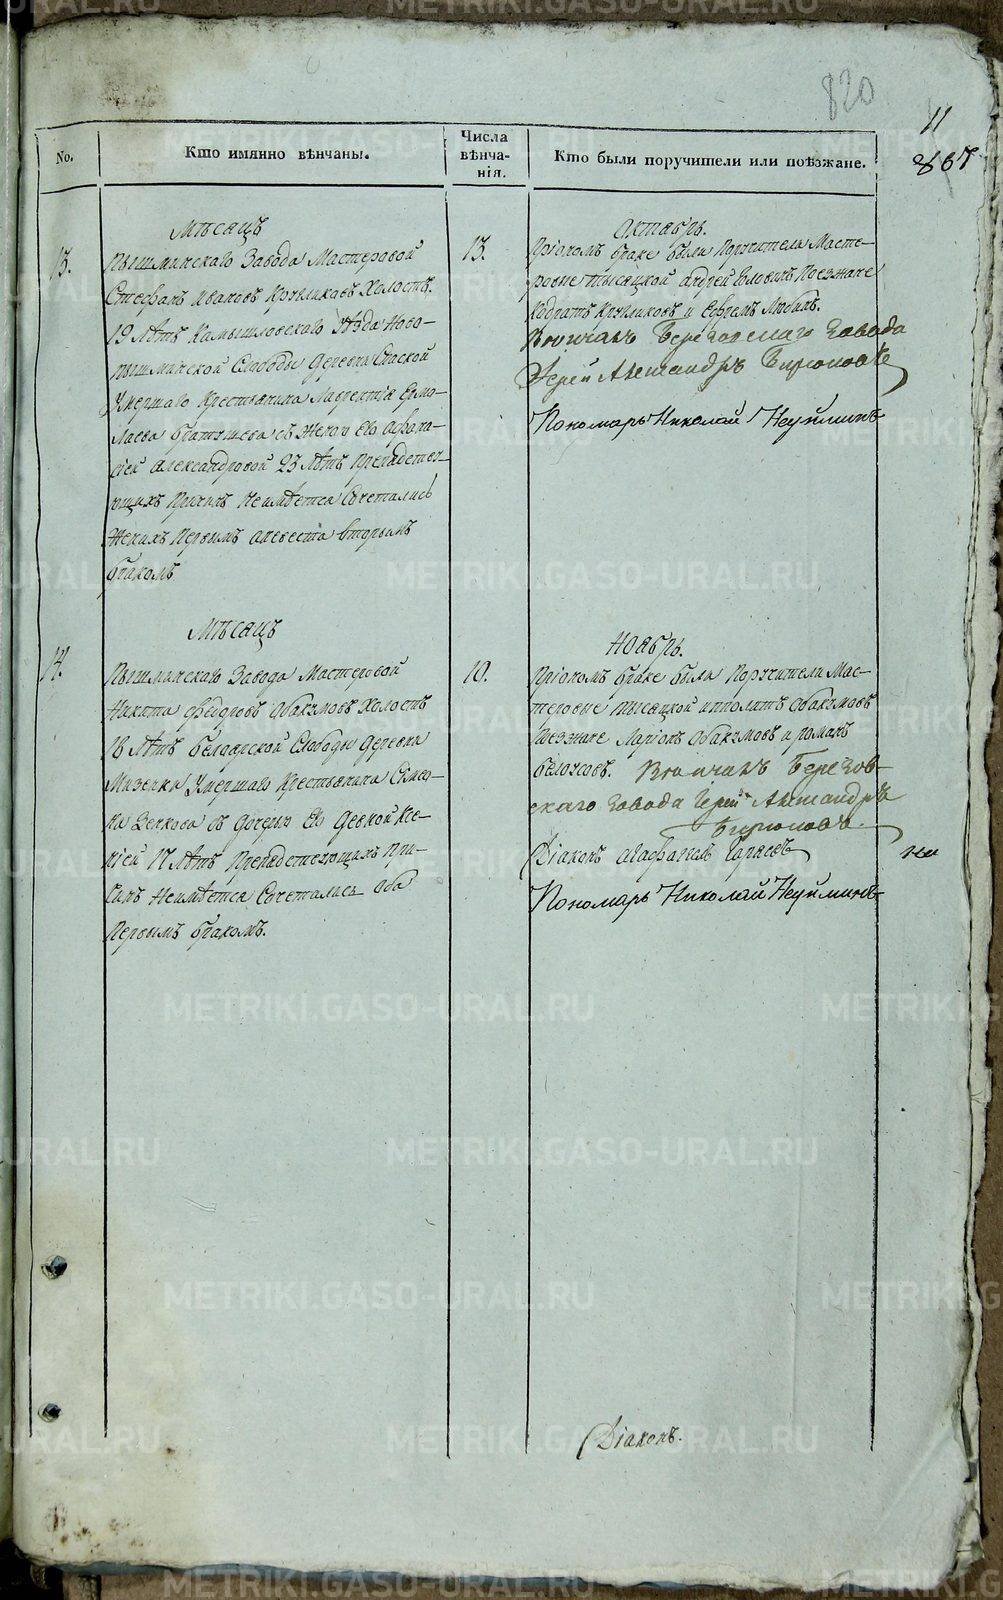 820
11
867
No.
Кто имянно вѣнчаны.
Числа вѣнча-
нія.
Кто были поручители или поѣзжане.
Мѣсяцъ
Октябрь.
13.
Пышминскаго Завода Мастеровой
Стефанъ Ивановъ Кругликовъ Холостъ
19 Лѣтъ Камышловскаго Уѣзда Ново-
пышминской Слободы Деревни Спаской
Умершаго Крестьянина Лаврентія Ермо-
лаева братышева съ Женою Его Афана-
сіей Александровой 23 Лѣтъ Препядствую-
ющихъ Причинъ Неимѣется Сочетались
Женихъ Первымъ аневеста вторымъ
бракомъ
13.
Приономъ браке были Поручители Масте-
ровые тысяцкой андрей Поезжане
Кодратъ Кругликовъ и Ефремъ Любинъ.
Венчалъ Березовскаго завода
Іерей Александръ Бирюковъ
Пономарь Николай Неуйминъ
Мѣсяцъ
Ноябрь.
14.
Пышминскаго Завода Мастеровой
Никита Федоровъ Абакумовъ Холостъ
18 Лѣтъ Белоярской Слободы Деревни
Мизенки Умершаго Крестьянина Симео-
на Зенкова съ Дочерью Его Девкой Ксе-
ніей 17 Лѣтъ Препядствующихъ При-
чинъ Неимѣется Сочетались Оба
Первымъ бракомъ.
10.
Приономъ браке были Поручители Мас-
теровые тысяцкой ипполитъ Абакумовъ
Поезжане Ларіонъ Абакумовъ и романъ
белоусовъ. Венчалъ Березов-
скаго завода Іерей Александръ
Бирюковъ.
Діаконъ
Пономарь Николай Неуйминъ
Діаконъ.
METRIKI.GASO-URAL.RU